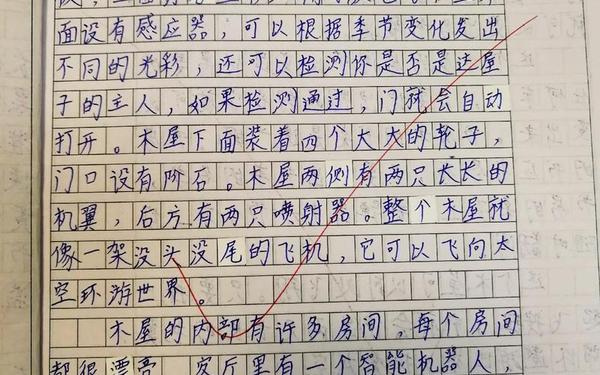 面设有感应器，可以根据季节变化发出
不同的光彩，还可以检测你是否是这屋
子的主人，如果检测通过，门就会自动
打开。木屋下面装着四个大大的轮子，
门口设有阶石。木屋两侧有两只长长的
机翼，后方有两只喷射器。整个木屋就
像一架没头没尾的飞机，它可以飞向太
空环游世界。
木屋的内部有许多房间，每个房间
都很漂亮。客厅里有一个智能机器人，